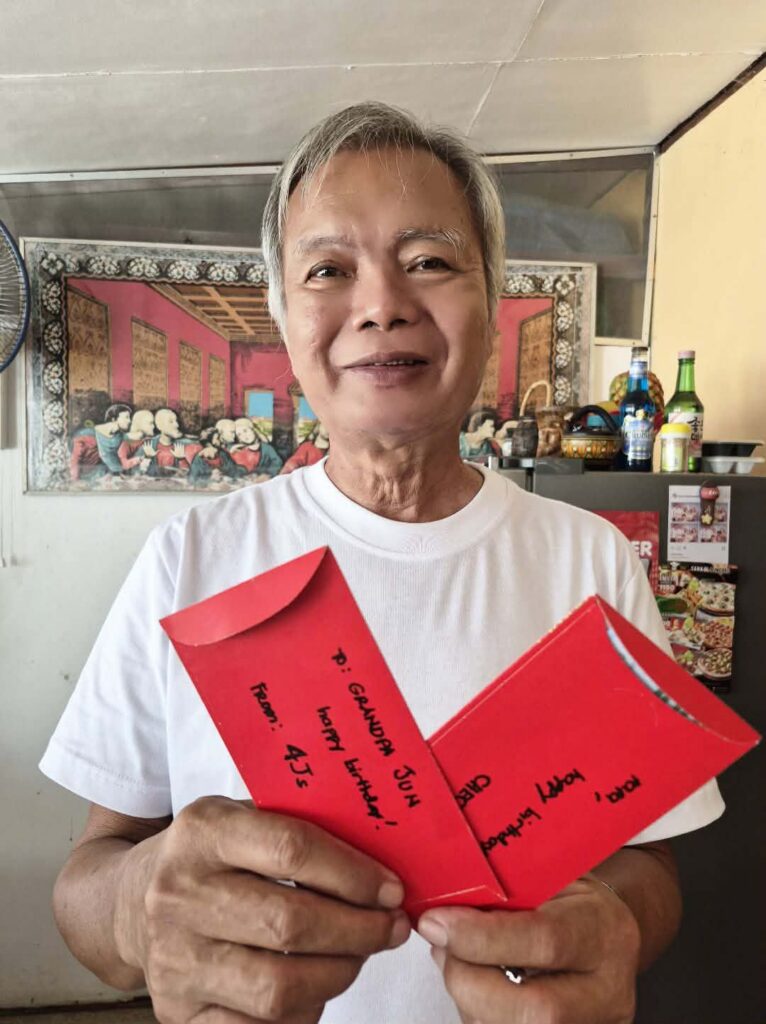 To: GRANDPA JUN
happy birthday!
From: 4Js
happy birthday